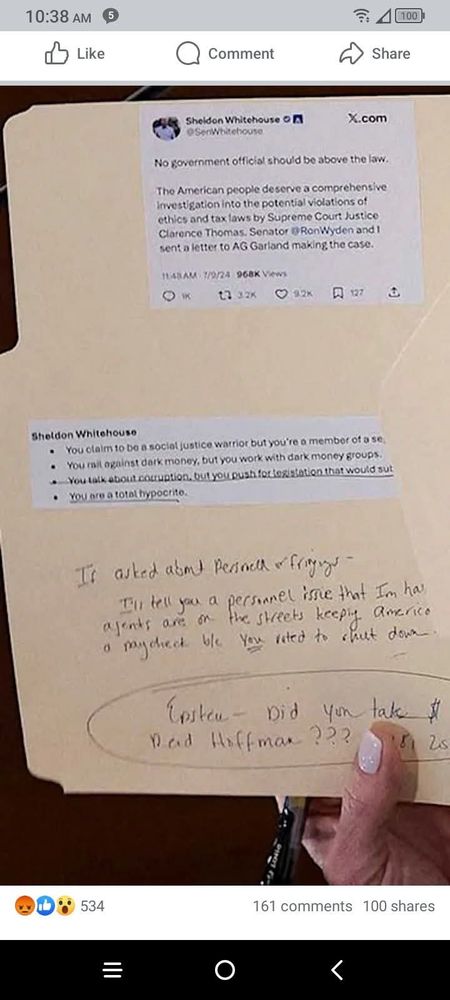 10:38 AM 5
100
Like Comment Share
Sheldon Whitehouse
@SenWhitehouse
X.com
No government official should be above the law.
The American people deserve a comprehensive
investigation into the potential violations of
ethics and tax laws by Supreme Court Justice
Clarence Thomas. Senator @RonWyden and I
sent a letter to AG Garland making the case.
11:48 AM · 7/9/24 · 968K Views
1K 3.2K 9.2K 127
Sheldon Whitehouse
• You claim to be a social justice warrior but you're a member of a se
• You rail against dark money, but you work with dark money groups.
• You talk about corruption, but you push for legislation that would sut
• You are a total hypocrite.
If asked about Personnel or
I'll tell you a personnel issue that I'm ha
agents are on the streets keeping America
a paycheck b/c You voted to shut down.
Epstein - Did you take $
Reid Hoffman ???
534 161 comments 100 shares